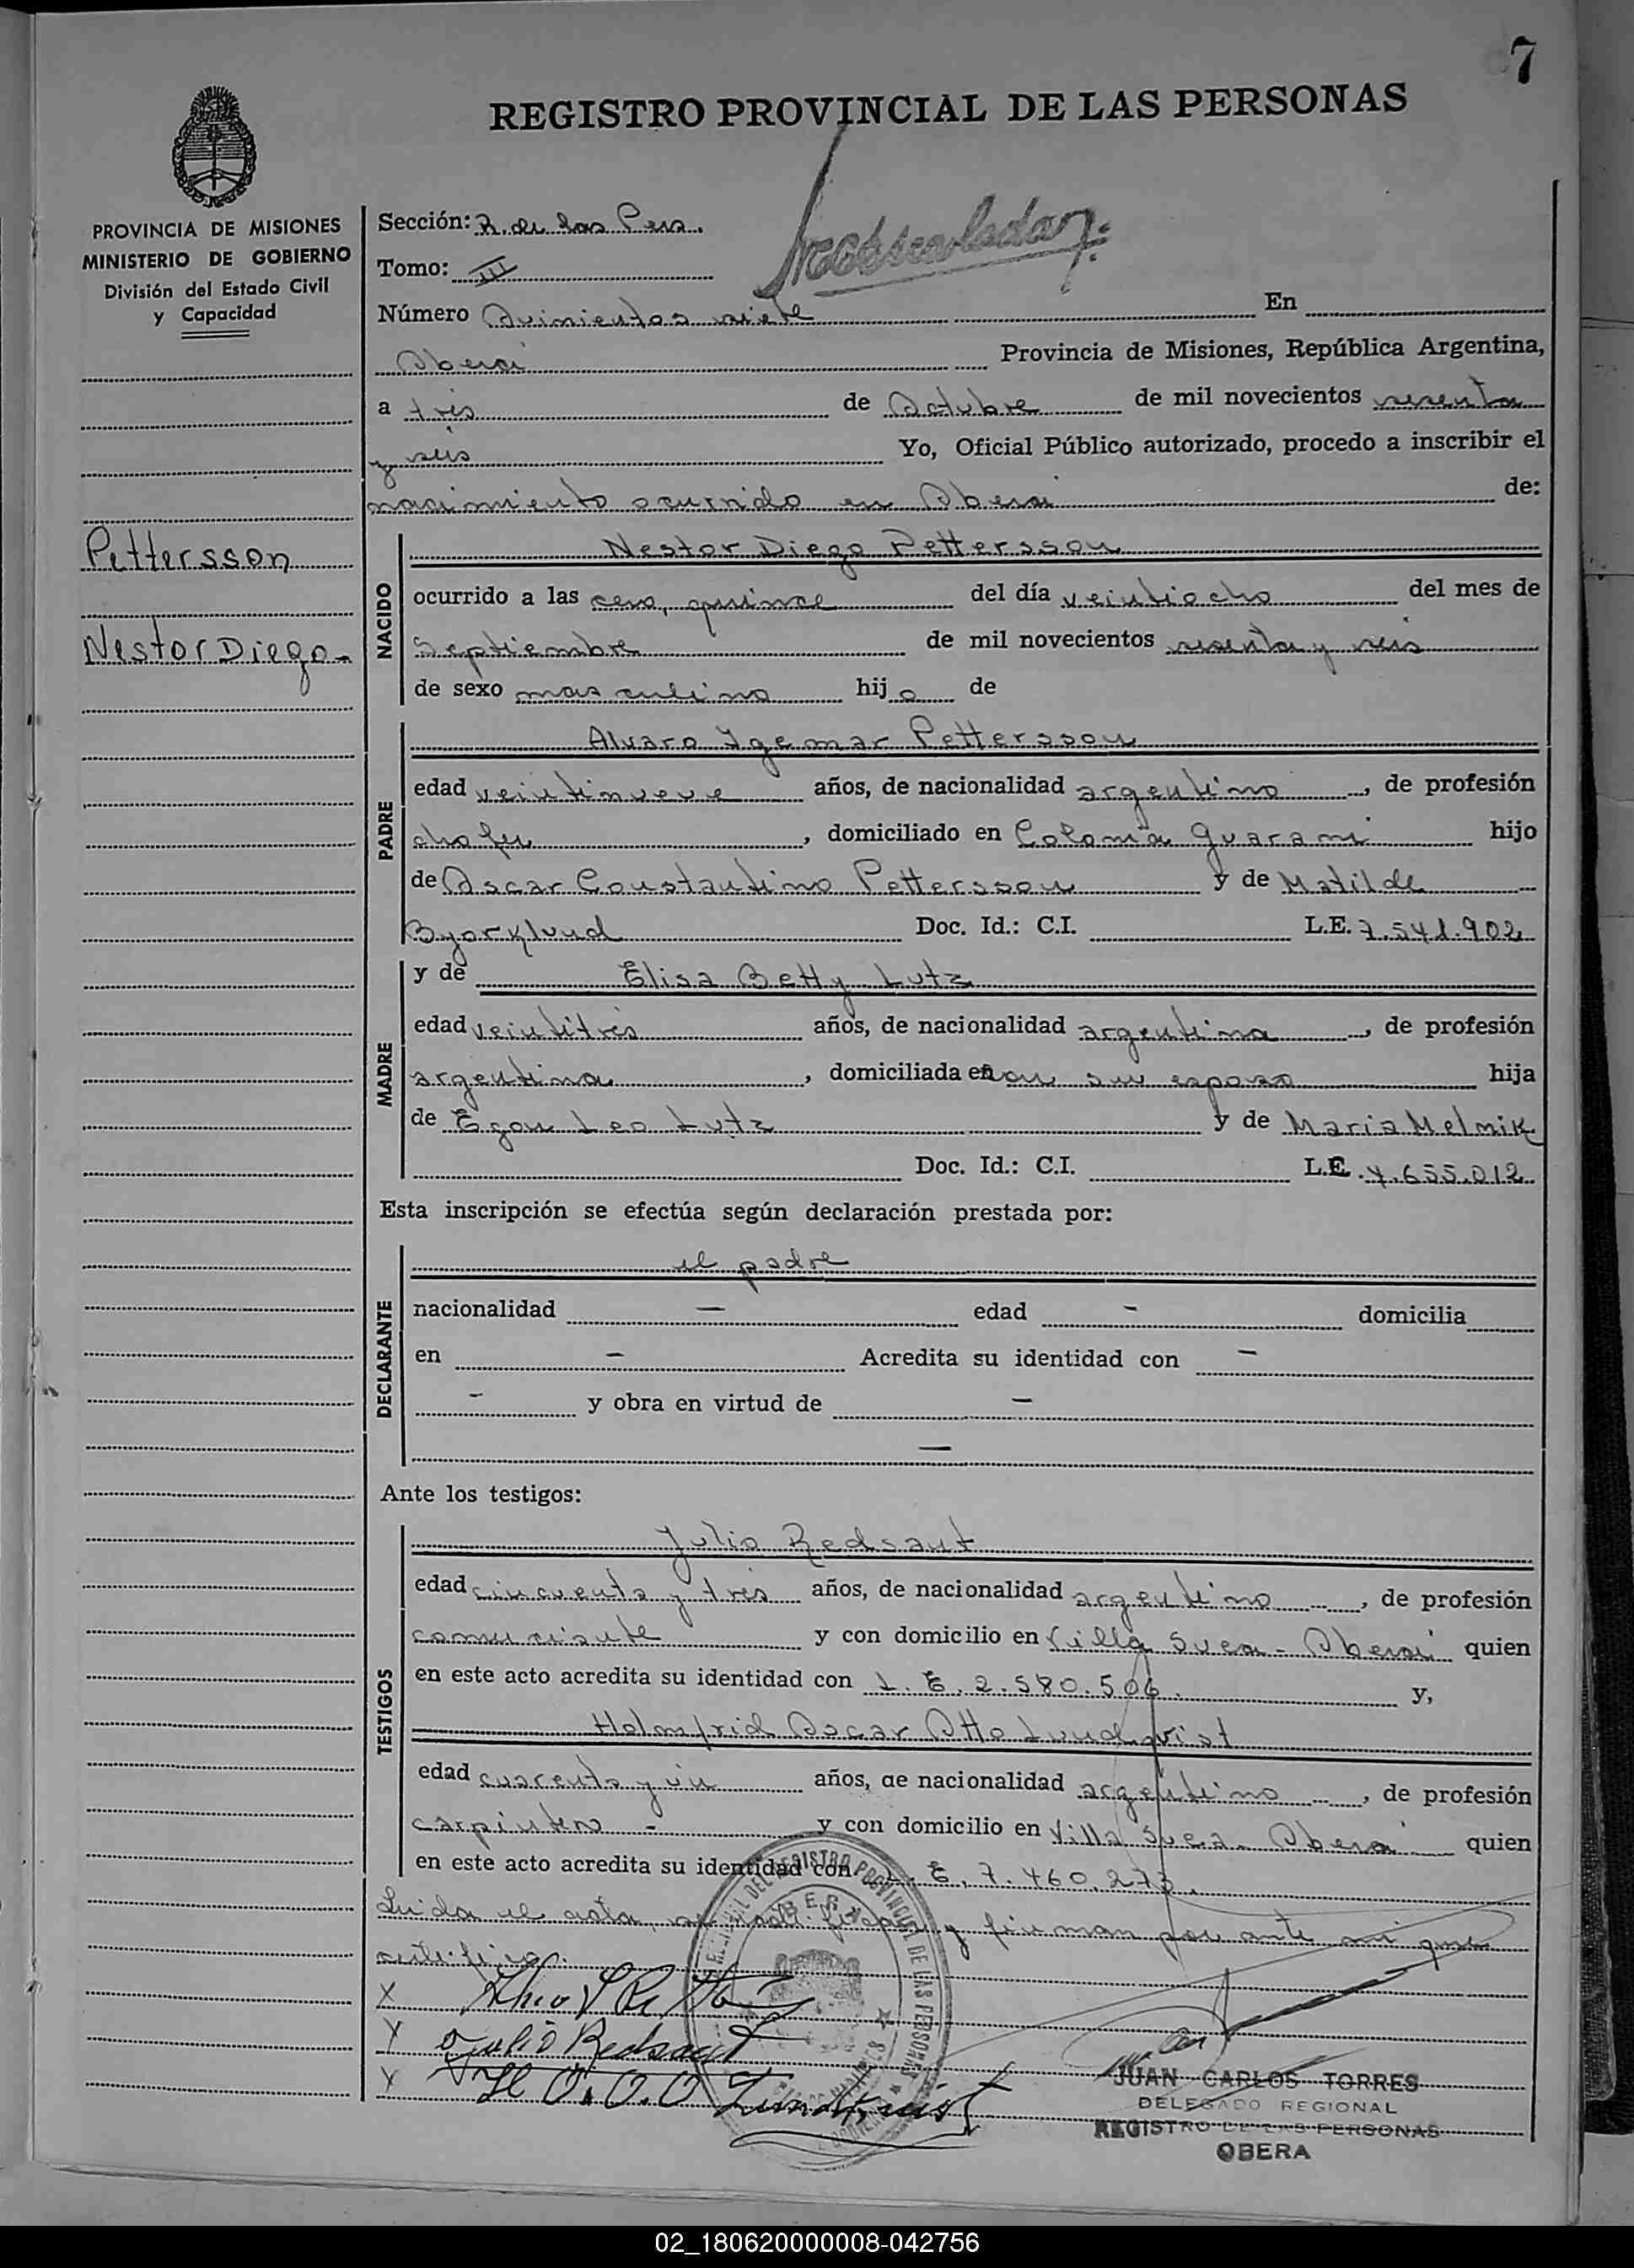 7
REGISTRO PROVINCIAL DE LAS PERSONAS
PROVINCIA DE MISIONES
MINISTERIO DE GOBIERNO
División del Estado Civil
y Capacidad
Pettersson
Nestor Diego.-
Sección: R. de las Pers.
Tomo: III
Número Quinientos siete En
Oberá Provincia de Misiones, República Argentina,
a tres de Octubre de mil novecientos sesenta
y seis Yo, Oficial Público autorizado, procedo a inscribir el
nacimiento ocurrido en Oberá de:
NACIDO
Nestor Diego Pettersson
ocurrido a las cero, quince del día veintiocho del mes de
Septiembre de mil novecientos sesenta y seis
de sexo masculino hijo de
PADRE
Alvaro Ygemar Pettersson
edad veintinueve años, de nacionalidad argentino, de profesión
chofer, domiciliado en Colonia Guaraní hijo
de Oscar Constantino Pettersson y de Matilde
Byorklund Doc. Id.: C.I. L.E. 7.541.902
MADRE
y de Elisa Betty Lutz
edad veintitres años, de nacionalidad argentina, de profesión
argentina, domiciliada en con su esposo hija
de Egon Leo Lutz y de Maria Melnik
Doc. Id.: C.I. L.C. 4.655.012
Esta inscripción se efectúa según declaración prestada por:
DECLARANTE
el padre
nacionalidad — edad - domicilia
en - Acredita su identidad con -
- y obra en virtud de -
—
Ante los testigos:
TESTIGOS
Julio Redsaut
edad cincuenta y tres años, de nacionalidad argentino, de profesión
comerciante y con domicilio en Villa Svea - Oberá quien
en este acto acredita su identidad con L.E. 2.580.506. y,
Holmfrid Oscar Otto Lundqvist
edad cuarenta y un años, de nacionalidad argentino, de profesión
carpintero - y con domicilio en Villa Svea - Oberá quien
en este acto acredita su identidad con L.E. 7.460.273.
Leida el acta, y firman por ante mí que
certifico.
X
X Julio Redsaut
X H O. O. O Lundkvist
JUAN CARLOS TORRES
DELEGADO REGIONAL
REGISTRO DE LAS PERSONAS
OBERA
02_180620000008-042756